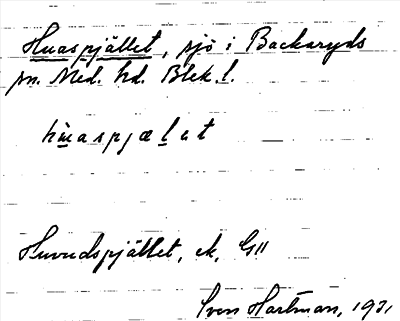 Huaspjället, sjö i Backaryds
sn. Med. hd. Blek. l.
hu̲aspjæl̲ət
Huvudspjället, ek, G11
Sven Hartman, 1931